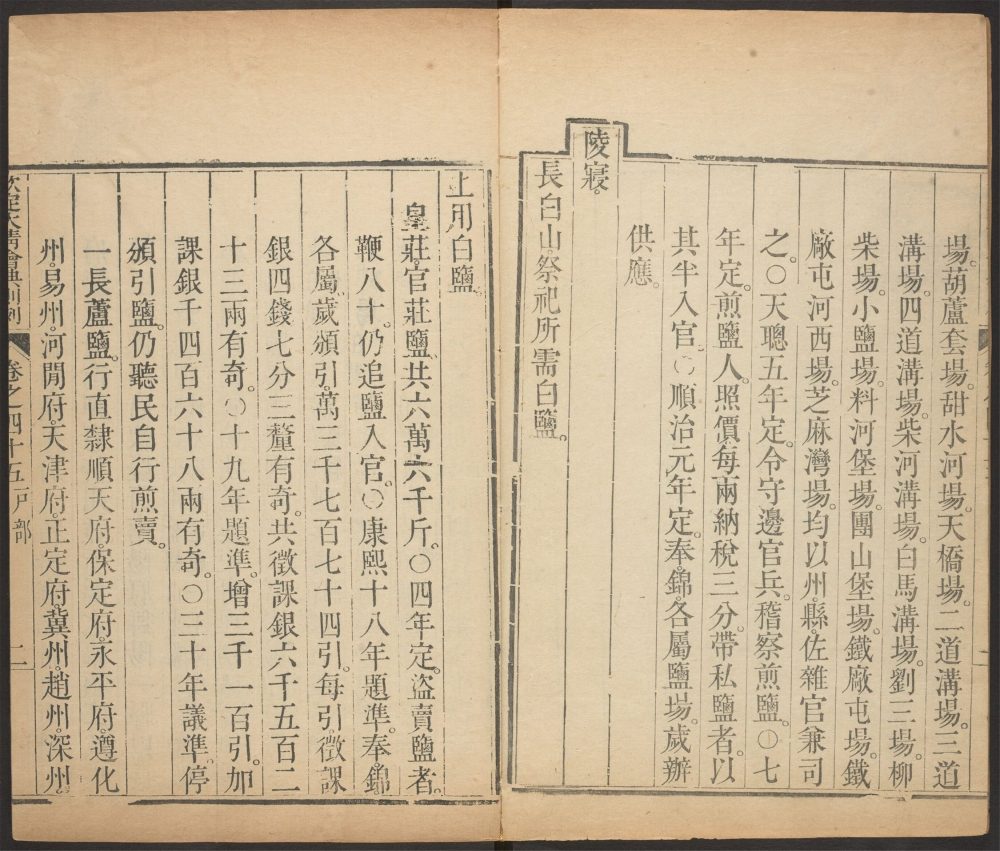 場。葫蘆套場。甜水河場。天橋場。二道溝場。三道
溝場。四道溝場。柴河溝場。白馬溝場。劉三場。柳
柴場。小鹽場。料河堡場。團山堡場。鐵廠屯場。鐵
廠屯河西場。芝麻灣場。均以州。縣。佐雜官兼司
之。○天聰五年定。令守邊官兵。稽察煎鹽。○七
年定。煎鹽人。照價每兩納稅三分。帶私鹽者。以
其半入官。○順治元年定。奉。錦。各屬鹽場。歲辦
供應。
陵寢。
長白山。祭祀所需白鹽。
上用白鹽。
皇莊。官莊鹽。共六萬六千斤。○四年定。盜賣鹽者。
鞭八十。仍追鹽入官。○康熙十八年題準。奉。錦
各屬。歲頒引。萬三千七百七十四引。每引。徵課
銀四錢七分三釐有奇。共徵課銀六千五百二
十三兩有奇。○十九年題準。增三千一百引。加
課銀千四百六十八兩有奇。○三十年議準。停
頒引鹽。仍聽民自行煎賣。
一長蘆鹽。行直隸順天府。保定府。永平府。遵化
州。易州。河閒府。天津府。正定府。冀州。趙州。深州。
欽定大清會典則例 卷之四十五 戶部 二